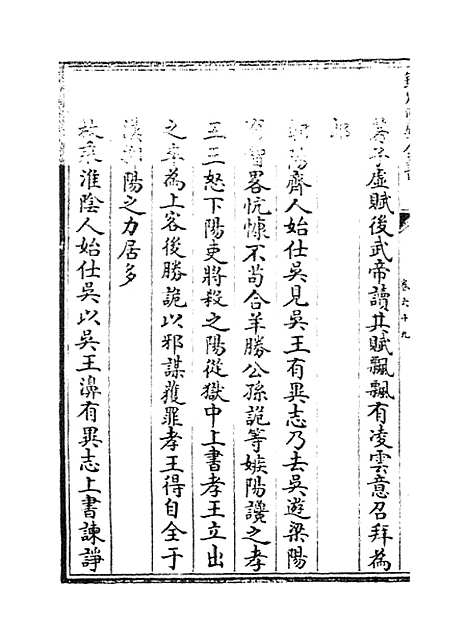 著子虛賦後武帝讀其賦飄飄有凌雲意召拜為
郎
鄒陽齊人始仕吳見吳王有異志乃去吳遊梁陽
有智畧忼慷不苟合羊勝公孫詭等嫉陽讒之孝
王王怒下陽吏將殺之陽從獄中上書孝王立出
之卒為上客後勝詭以邪謀獲罪孝王得自全于
漢鄒陽之力居多
枚乘淮陰人始仕吳以吳王濞有異志上書諫諍
卷六十九